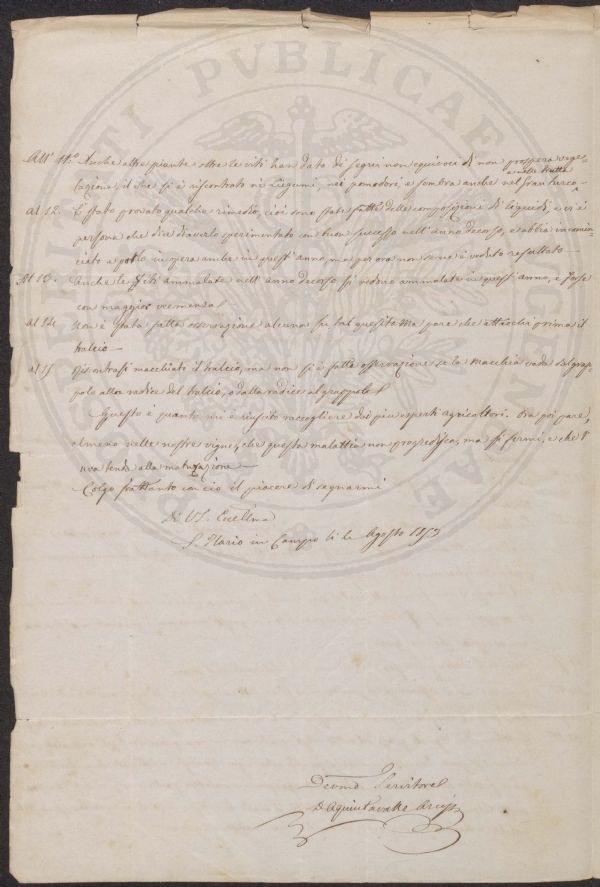 All' 11.º Anche altre piante oltre le viti han dato di segni non equivoci di non prospera vege-
e nelle frutta
tazione, il che si è riscontrato ne' Legumi, nei pomodori, e sembra anche nel Gran turco
Al 12. È stato provato qualche rimedio, cioè sono state fatte delle composizioni di Liquidi, e vi è
persona che dice di averlo sperimentato con buon successo nell'anno decorso, e abbia incomin-
ciato a porlo in opera anche in quest'anno, ma per ora non se ne è veduto resultato —
Al 13. Anche le Viti ammalate nell'anno decorso si vedono ammalate in quest'anno, e forse
con maggior veemenza
al 14. Non è stata fatta osservazione alcuna su tal quesito ma pare che attacchi prima il
tralcio —
al 15 Riscontrasi macchiato il tralcio, ma non si è fatta osservazione se la macchia vada dal grap-
polo alla radice del tralcio, o dalla radice al grappolo
Questo è quanto mi è riuscito raccogliere dai più esperti agricoltori. Ora poi pare,
almeno nelle nostre vigne, che questa malattia non progredisca, ma si fermi, e che l'
uva tenda alla maturazione —
Colgo frattanto con ciò il piacere di segnarmi
Di VS. Eccellma
S. Ilario in Campo li Agosto 1853
Devmo Servitore
PVBLICAE